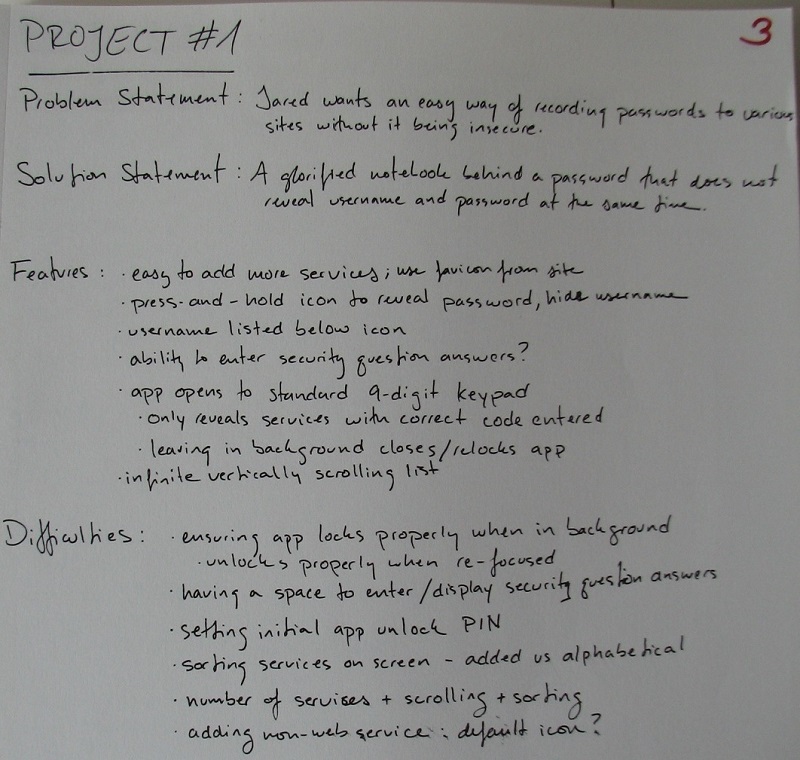 PROJECT #1
3
Problem Statement: Jared wants an easy way of recording passwords to various
sites without it being insecure.
Solution Statement: A glorified notebook behind a password that does not
reveal username and password at the same time.
Features: · easy to add more services; use favicon from site
· press-and-hold icon to reveal password, hide username
· username listed below icon
· ability to enter security question answers?
· app opens to standard 9-digit keypad
· only reveals services with correct code entered
· leaving in background closes/relocks app
· infinite vertically scrolling list
Difficulties: · ensuring app locks properly when in background
· unlocks properly when re-focused
· having a space to enter/display security question answers
· setting initial app unlock PIN
· sorting services on screen - added vs alphabetical
· number of services + scrolling + sorting
· adding non-web service: default icon?